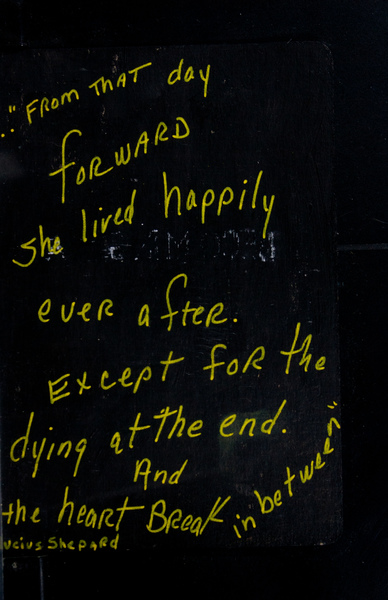 .."From THAT day
forWARD
She lived happily
ever after.
Except for the
dying at the end.
And
the heart Break in between"
ucius Shepard